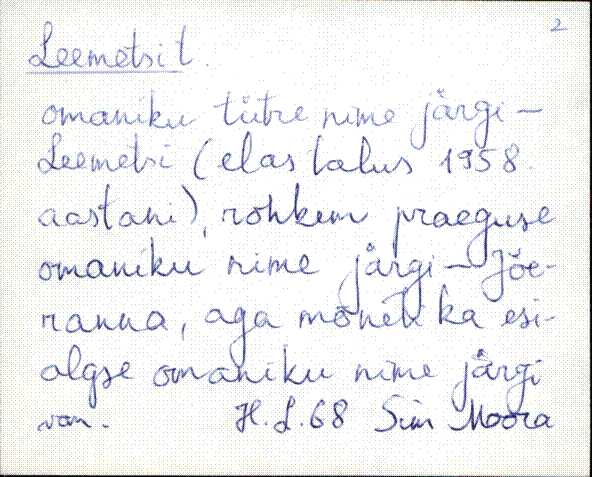 2
Leemetsi t.
omaniku tütre nime järgi –
Leemetsi (elas talus 1958.
aastani), rohkem praeguse
omaniku nime järgi – Jõe-
ranna, aga mõneti ka esi-
algse omaniku nime järgi
H. L. 68 Siiri Moora